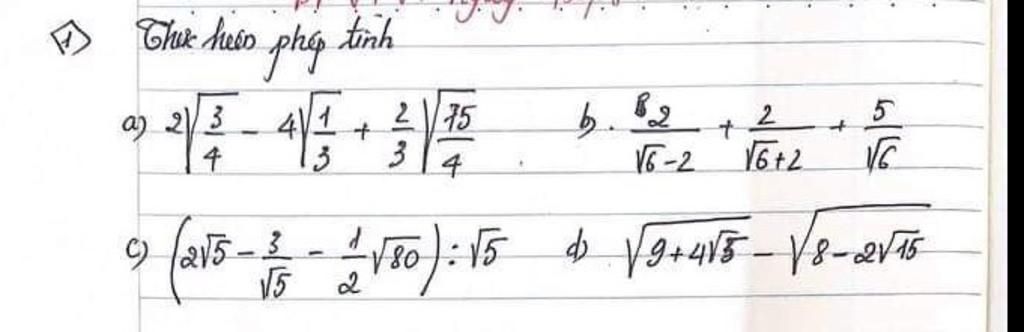 1 Thực hiện phép tính
a) 2√(3/4) - 4√(1/3) + 2/3 √(75/4) b. 2/(√6-2) + 2/(√6+2) + 5/√6
c) (2√5 - 3/√5 - 1/2 √80) : √5 d) √(9+4√5) - √(8-2√15)